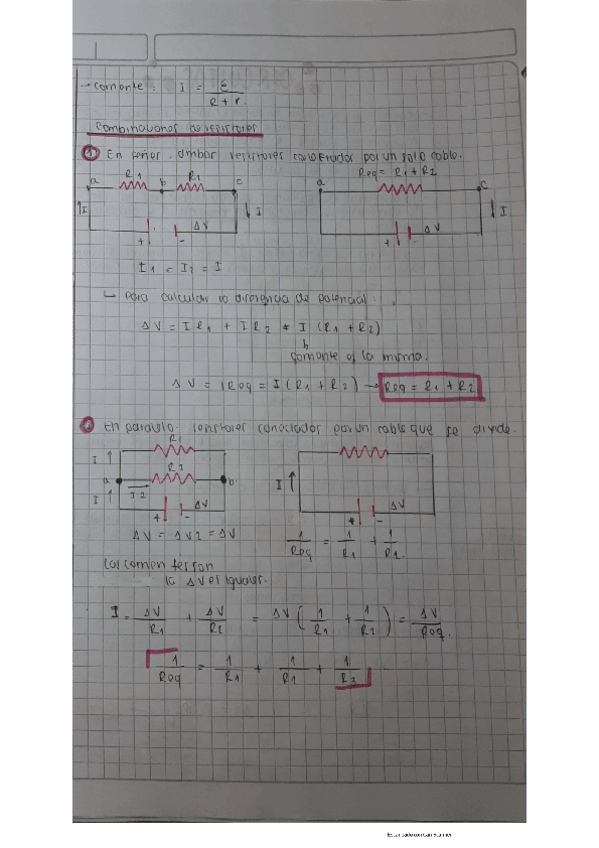 → corriente: I = ε / R + r
combinaciones de resistores
① En series. ambos resistores conectados por un solo cable.
R1 R2 Req = R1 + R2
a b c a c
I I I
+ - ΔV + - ΔV
I1 = I2 = I
↳ Para calcular la diferencia de potencial:
ΔV = I R1 + I R2 = I (R1 + R2)
corriente es la misma.
ΔV = I Req = I (R1 + R2) → Req = R1 + R2
En paralelo resistores conectados por un cable que se divide.
R1
I R2
a b
I I2 I
+ - ΔV + - ΔV
ΔV = ΔV2 = ΔV 1/Req = 1/R1 + 1/R1
Las corrientes son
la ΔV es igual es.
I = ΔV/R1 + ΔV/R2 = ΔV (1/R1 + 1/R2) = ΔV/Req.
1/Req = 1/R1 + 1/R1 + 1/R2
Escaneado con CamScanner